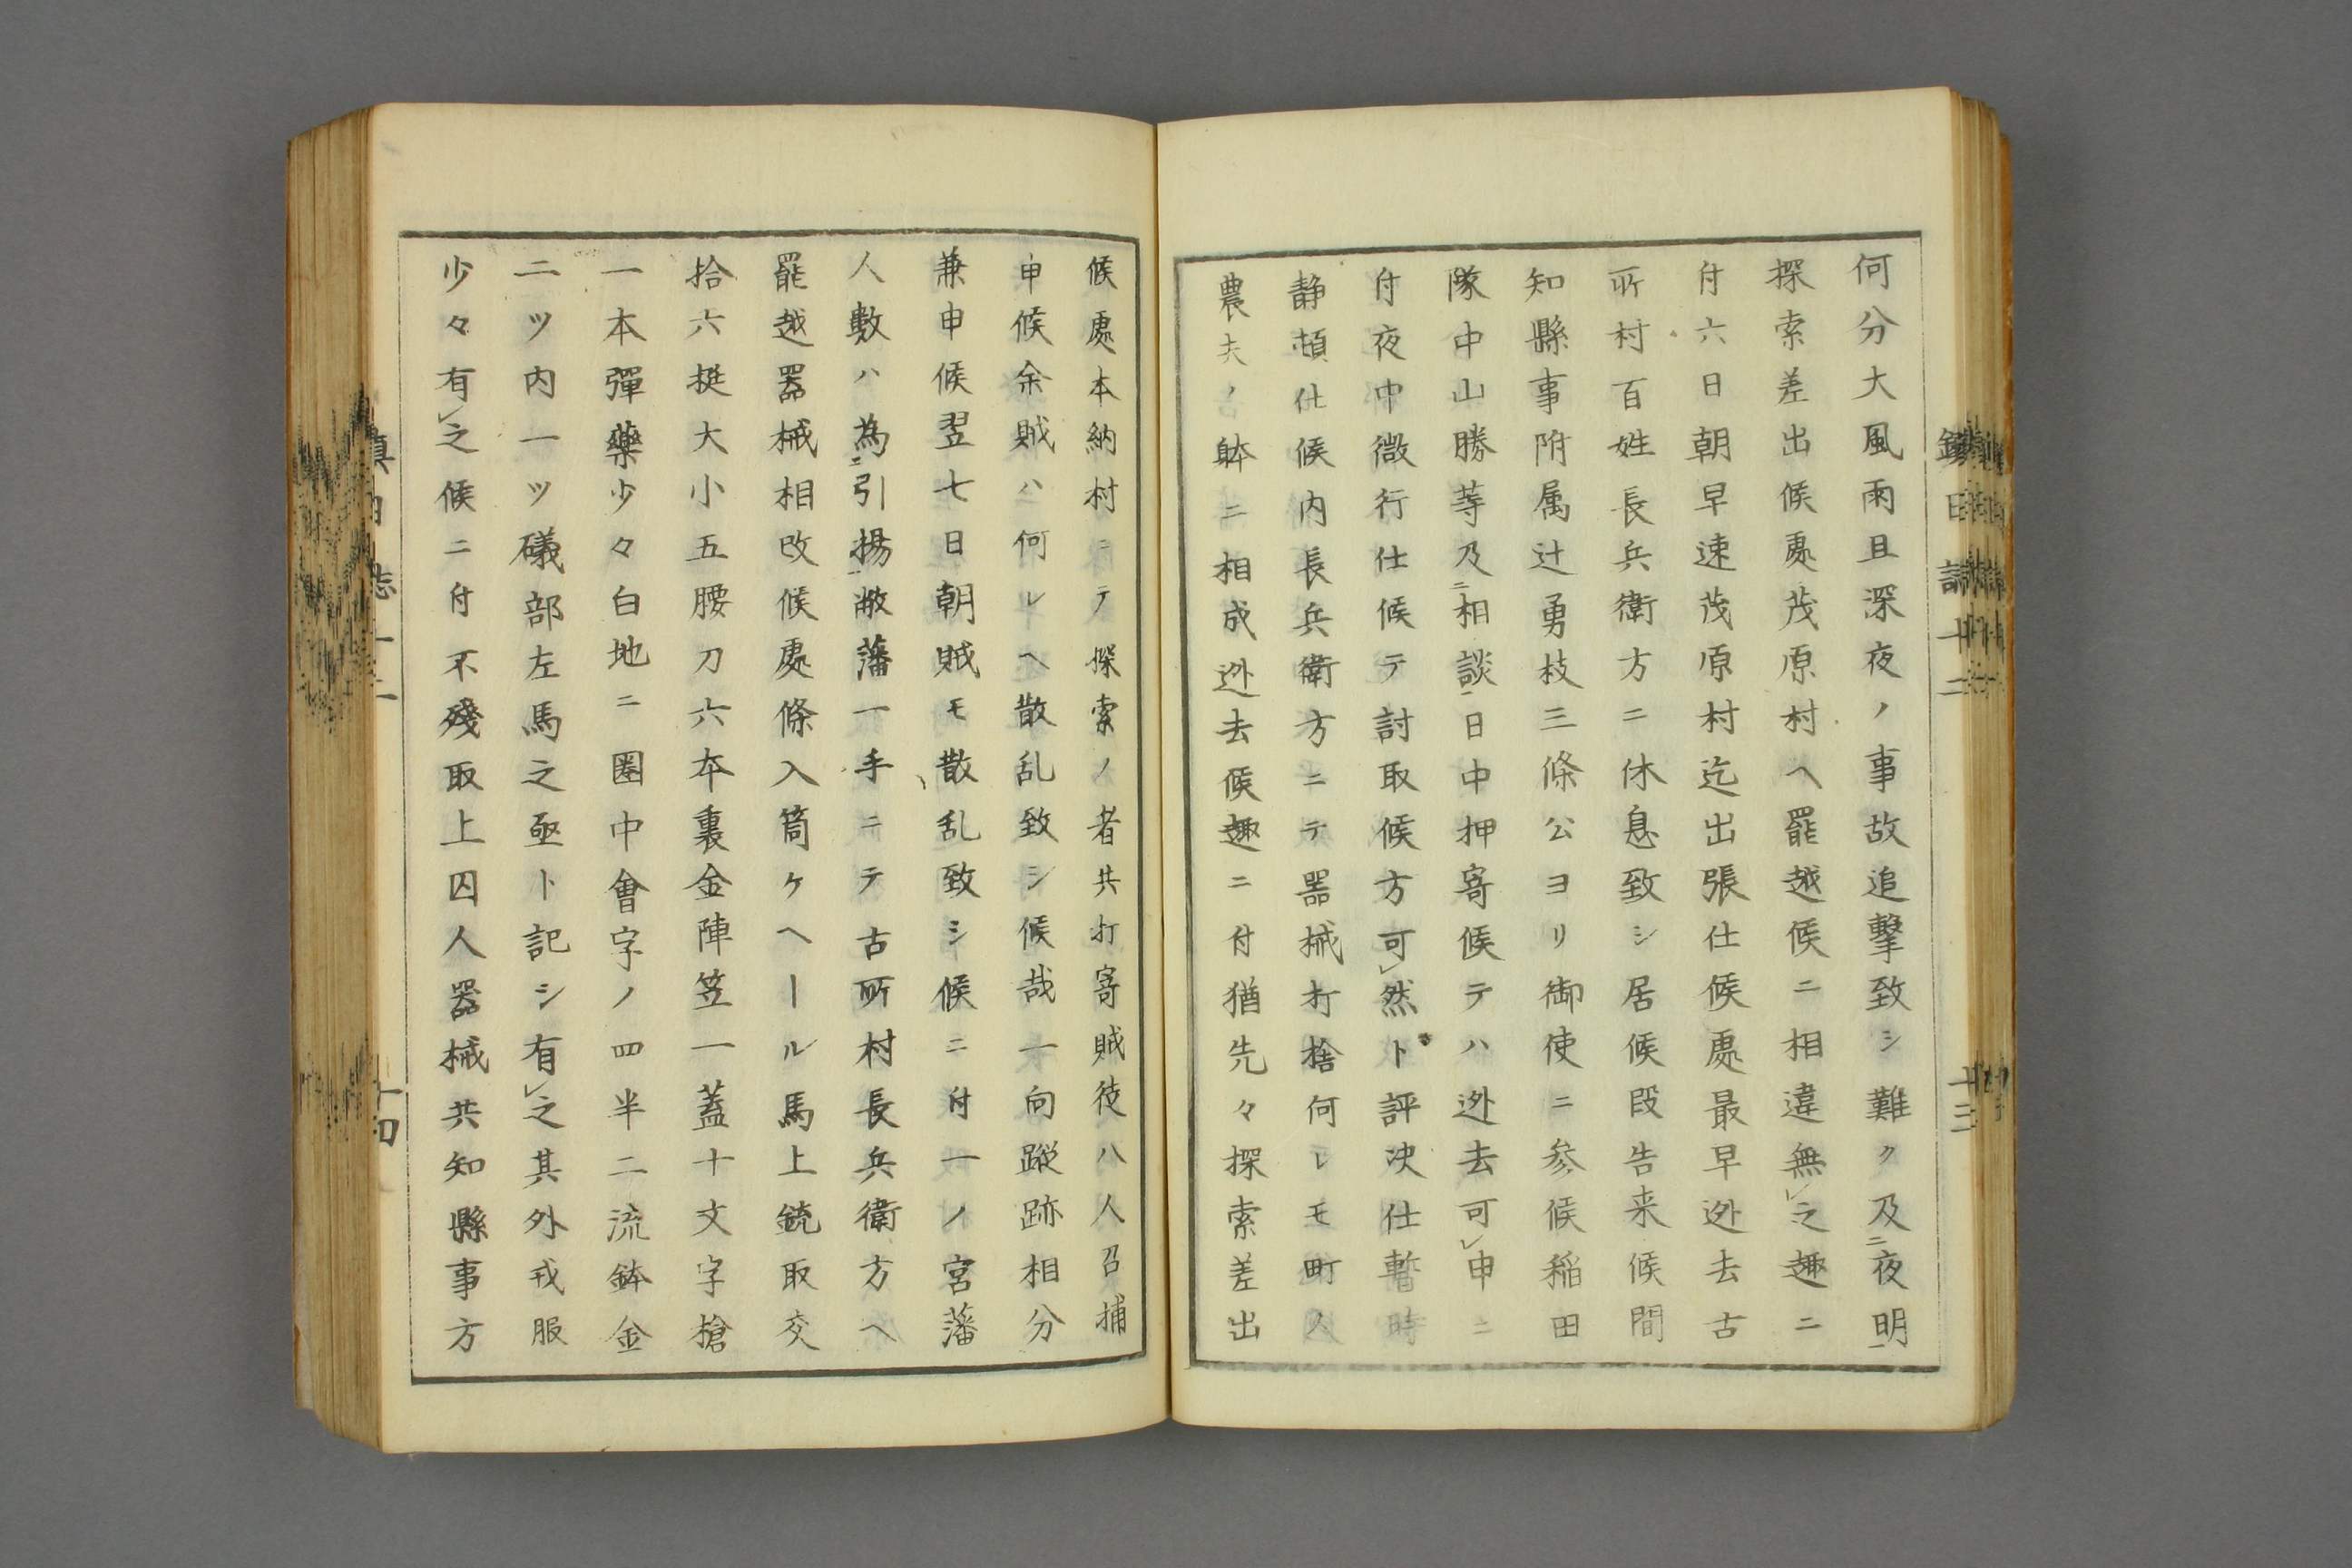 鎮日誌十二
十三
何分大風雨且深夜ノ事故追擊致シ難ク及二夜明一
探索差出候處茂原村ヘ罷越候ニ相違無レ之趣ニ
付六日朝早速茂原村迄出張仕候處最早迯去古
所村百姓長兵衛方ニ休息致シ居候段告来候間
知縣事附属辻勇枝三條公ヨリ御使ニ参候稲田
隊中山勝等及二相談一日中押寄候テハ迯去可レ申ニ
付夜中微行仕候テ討取候方可レ然ト評決仕暫時
静頓仕候内長兵衛方ニテ器械打捨何レモ町人
農夫ノ躰ニ相成迯去候趣ニ付猶先々探索差出
候處本納村ニテ探索ノ者共打寄賊徒八人召捕
申候余賊ハ何レヘ散乱致シ候哉一向蹤跡相分
兼申候翌七日朝賊モ散乱致シ候ニ付一ノ宮藩
人數ハ為二引揚一敝藩一手ニテ古所村長兵衛方ヘ
罷越器械相改候處條入筒ケヘール馬上銃取交
拾六挺大小五腰刀六本裏金陣笠一蓋十文字槍
一本彈藥少々白地ニ圏中會字ノ四半二流鉢金
二ツ内一ツ礒部左馬之亟ト記シ有レ之其外戎服
少々有レ之候ニ付不殘取上囚人器械共知縣事方